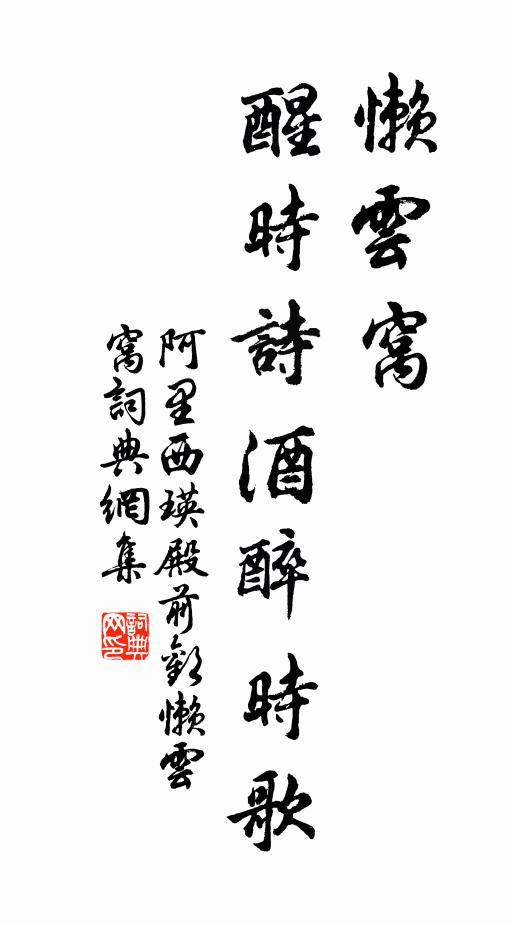 懶雲窩
醒時詩酒醉時歌
阿里西瑛殿前歡懶雲
窩詞典網集
詞典
网印